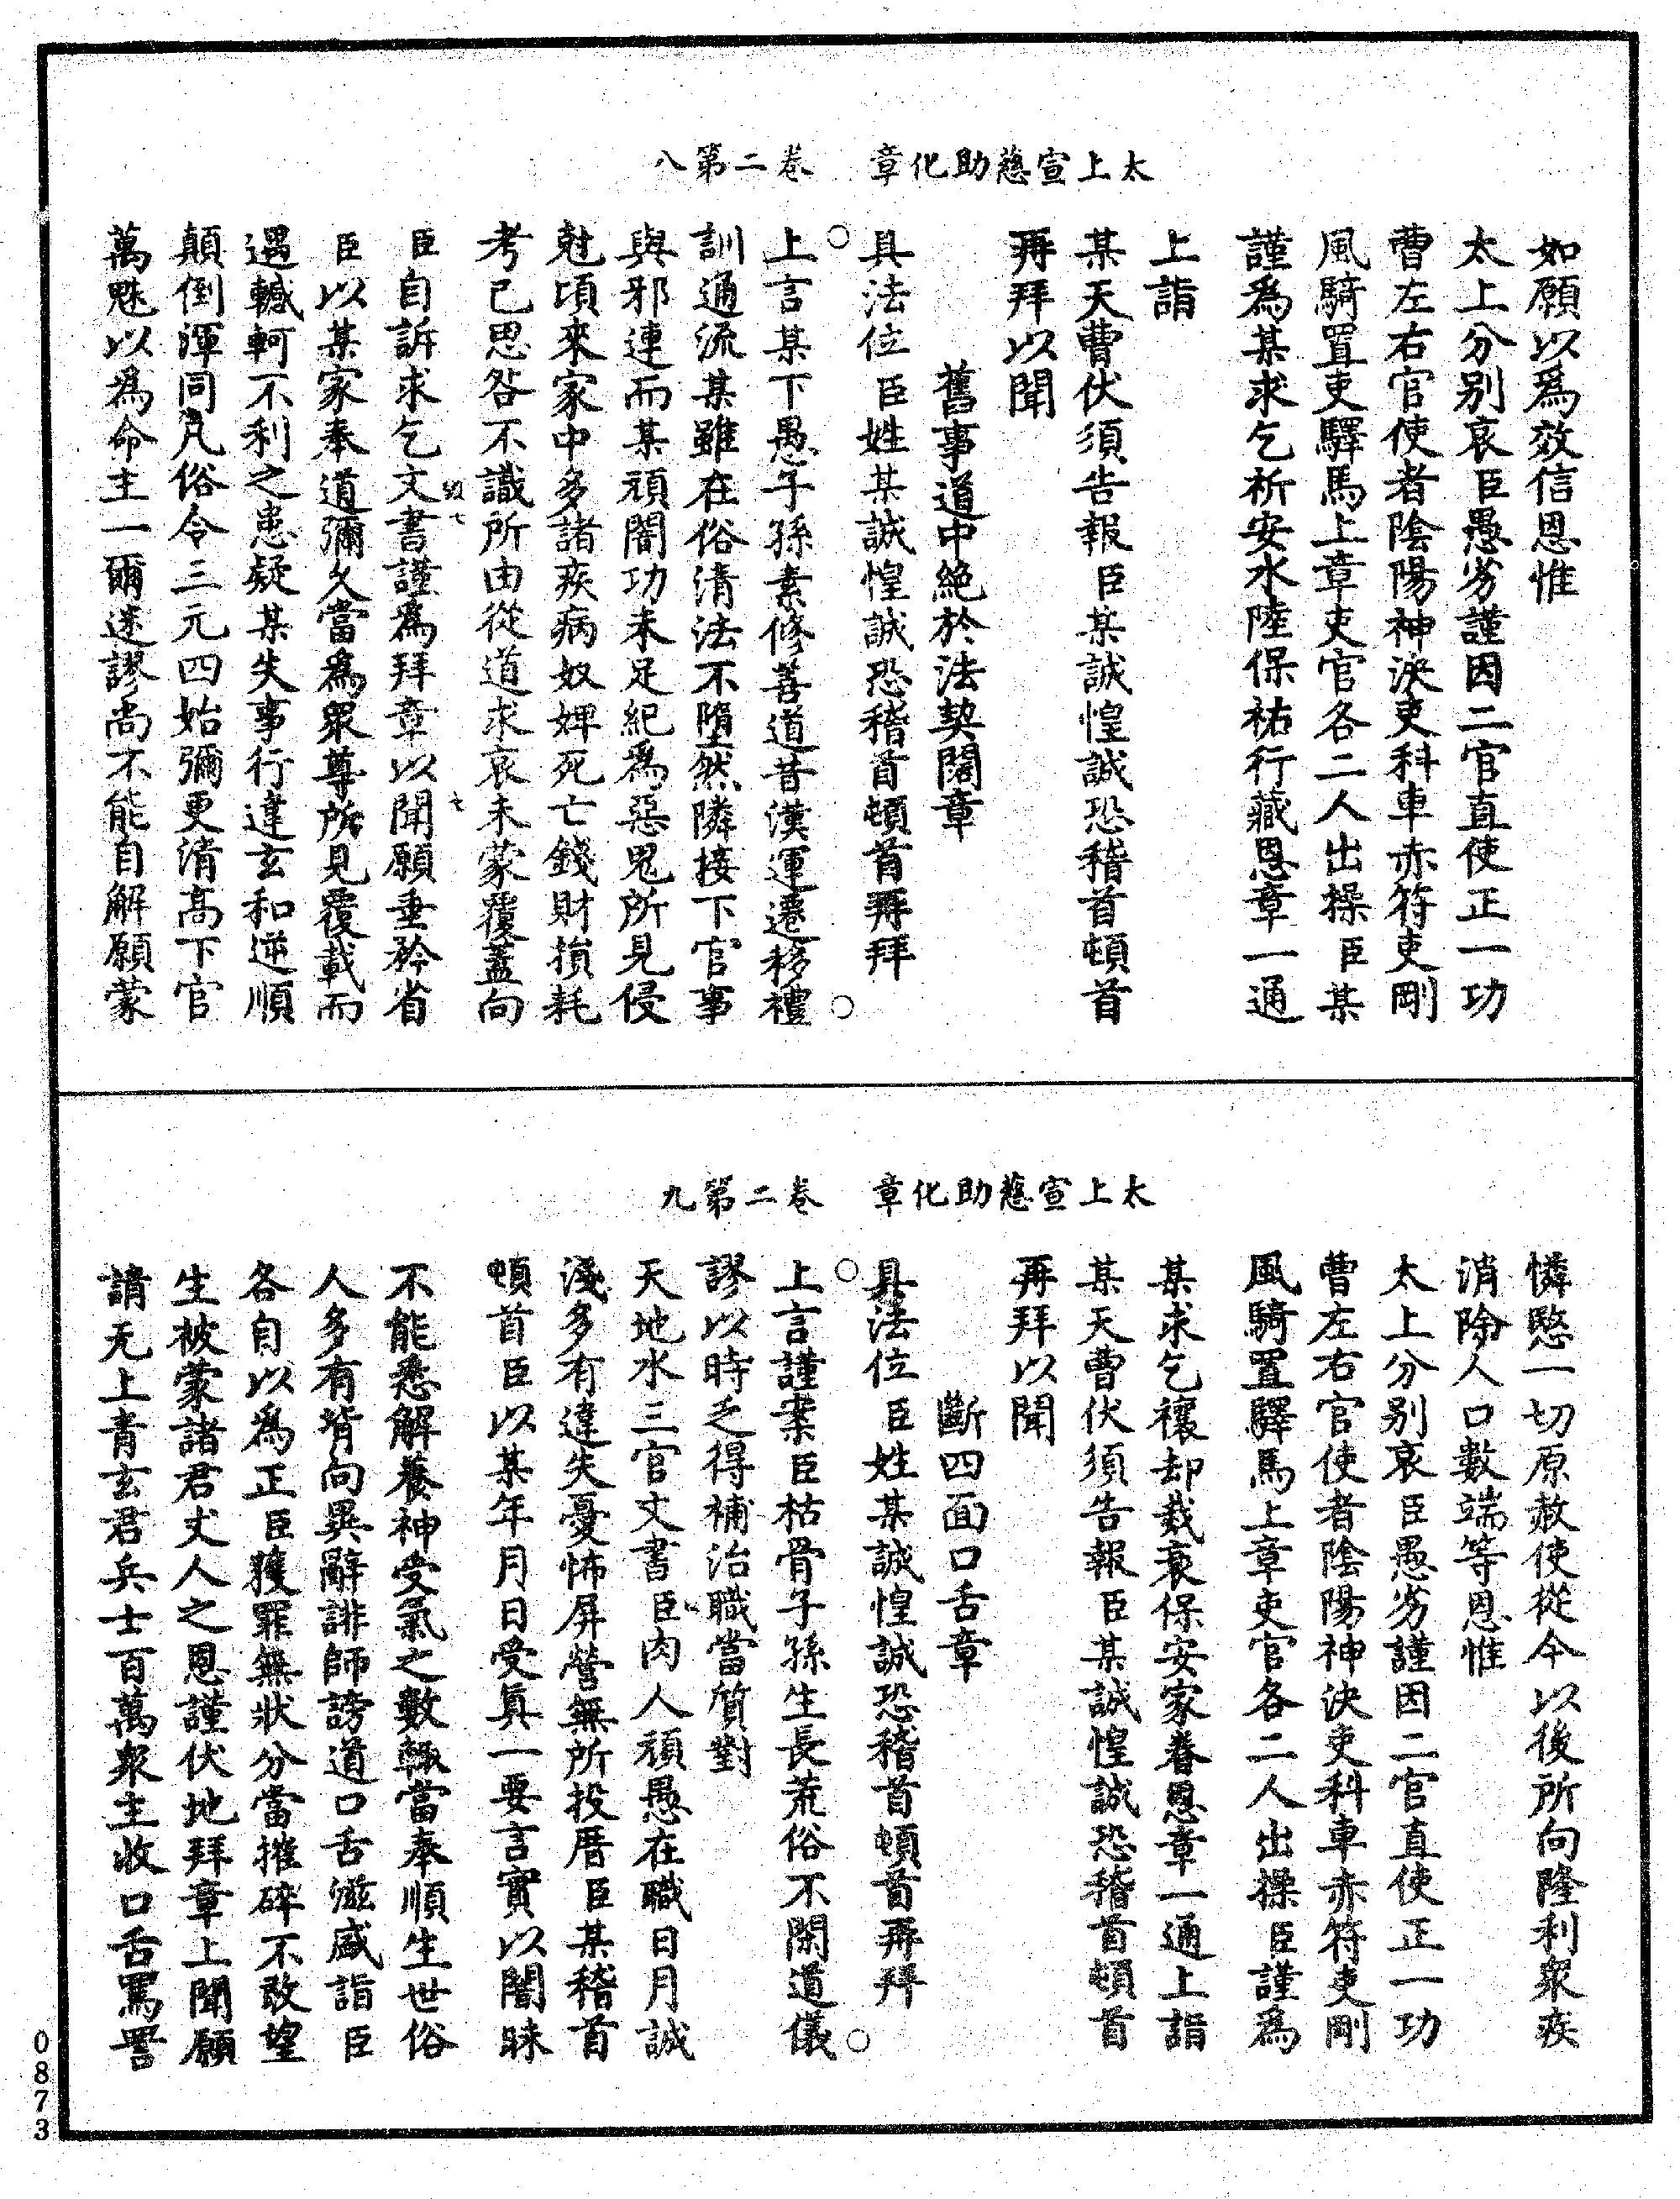 太上宣慈助化章　卷二第八
如願以為效信恩惟
太上分別哀臣愚劣謹因二官直使正一功
曹左右官使者陰陽神決吏科車赤符吏剛
風騎置吏驛馬上章吏官各二人出操臣某
謹為某求乞祈安水陸保祐行藏恩章一通
上詣
某天曹伏須告報臣某誠惶誠恐稽首頓首
再拜以聞
舊事道中絕於法契闊章
具法位臣姓某誠惶誠恐稽首頓首再拜
上言某下愚子孫素修善道昔漢運遷移禮
訓通流某雖在俗清法不墮然隣接下官事
與邪連而某頑闇功未足紀為惡鬼所見侵
尅頃來家中多諸疾病奴婢死亡錢財損耗
考己思咎不識所由從道求哀未蒙覆蓋向
臣自訴求乞文書謹為拜章以聞願垂矜省
臣以某家奉道彌久當為眾尊所見覆載而
遇轗軻不利之患疑某失事行違玄和逆順
顛倒渾同凡俗令三元四始彌更清高下官
萬魅以為命主一爾迷謬尚不能自解願蒙
太上宣慈助化章　卷二第九
憐愍一切原赦使從今以後所向隆利眾疾
消除人口數端等恩惟
太上分別哀臣愚劣謹因二官直使正一功
曹左右官使者陰陽神決吏科車赤符吏剛
風騎置驛馬上章吏官各二人出操臣謹為
某求乞禳却災衰保安家眷恩章一通上詣
某天曹伏須告報臣某誠惶誠恐稽首頓首
再拜以聞
斷四面口舌章
具法位臣姓某誠惶誠恐稽首頓首再拜
上言謹案臣枯骨子孫生長荒俗不閑道儀
謬以時乏得補治職當質對
天地水三官文書臣肉人頑愚在職日月誠
淺多有違失憂怖屏營無所投厝臣某稽首
頓首臣以某年月日受真一要言實以闇昧
不能悉解養神受氣之數輒當奉順生世俗
人多有背向異辭誹師謗道口舌滋盛詣臣
各自以為正臣獲罪無狀分當摧碎不敢望
生被蒙諸君丈人之恩謹伏地拜章上聞願
請无上青玄君兵士百萬眾主收口舌罵詈
0873